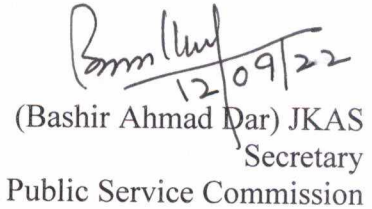 12/09/22
(Bashir Ahmad Dar) JKAS
Secretary
Public Service Commission